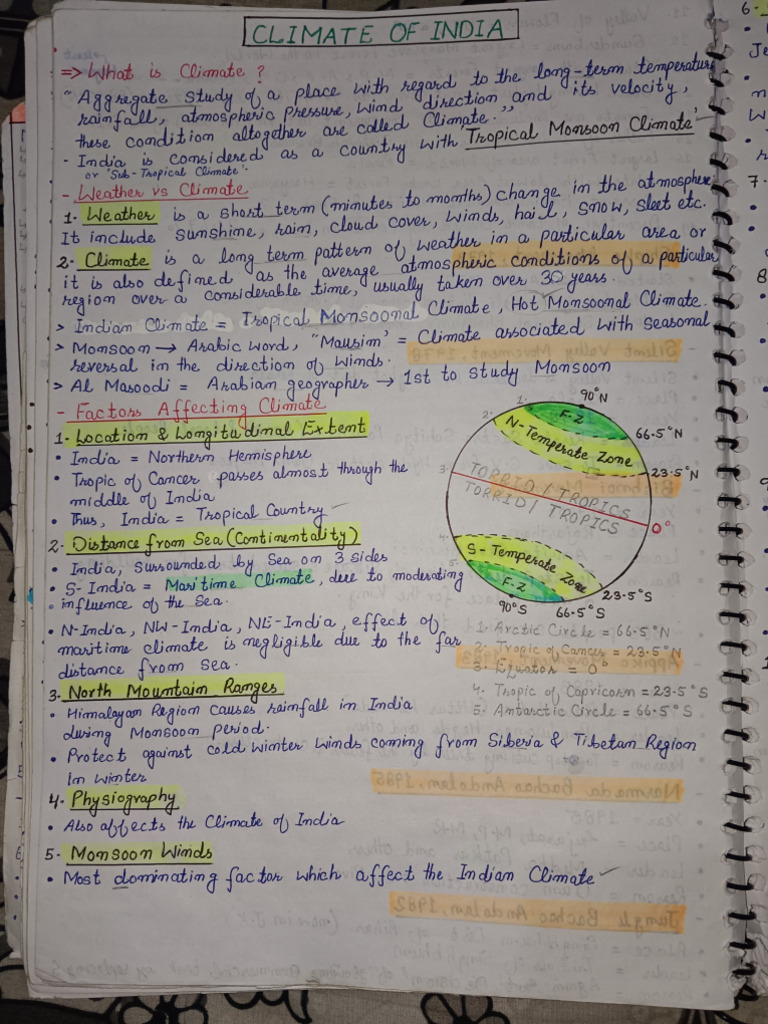 CLIMATE OF INDIA
=> What is Climate ?
" Aggregate study of a place with regard to the long-term temperature
rainfall, atmospheric pressure, wind direction and its velocity,
these condition altogether are called Climate."
- India is considered as a country with 'Tropical Monsoon Climate'
or 'Sub-Tropical Climate'
- Weather vs Climate
1. Weather is a short term (minutes to months) change in the atmosphere
It include sunshine, rain, cloud cover, winds, hail, snow, sleet etc.
2. Climate is a long term pattern of weather in a particular area or
it is also defined as the average atmospheric conditions of a particular
region over a considerable time, usually taken over 30 years.
> Indian Climate = Tropical Monsoonal Climate, Hot Monsoonal Climate.
> Monsoon → Arabic word, "Mausim' = Climate associated with seasonal
reversal in the direction of winds.
> Al Masoodi = Arabian geographer → 1st to study Monsoon
- Factors Affecting Climate
1. Location & Longitudinal Extent
• India = Northern Hemisphere
• Tropic of Cancer passes almost through the
middle of India
• Thus, India = Tropical Country
2. Distance from Sea (Continentality)
• India, surrounded by Sea on 3 sides
• S-India = Maritime Climate, due to moderating
• influence of the Sea.
• N-India, NW-India, NE-India, effect of
maritime climate is negligible due to the far
distance from sea.
3. North Mountain Ranges
• Himalayan Region causes rainfall in India
during Monsoon period.
• Protect against cold winter winds coming from Siberia & Tibetan Region
in winter
4. Physiography
• Also affects the Climate of India
5. Monsoon Winds
• Most dominating factor which affect the Indian Climate
90°N
1.
F-Z
2.
66.5°N
N-Temperate Zone
23.5°N
3.
TORRID / TROPICS
TORRID / TROPICS
0°
4.
S-Temperate Zone
5.
F-Z
23.5°S
90°S
66.5°S
1. Arctic Circle = 66.5°N
2. Tropic of Cancer = 23.5°N
3. Equator = 0°
4. Tropic of Capricorn = 23.5°S
5. Antarctic Circle = 66.5°S
6.
Je
7.
8